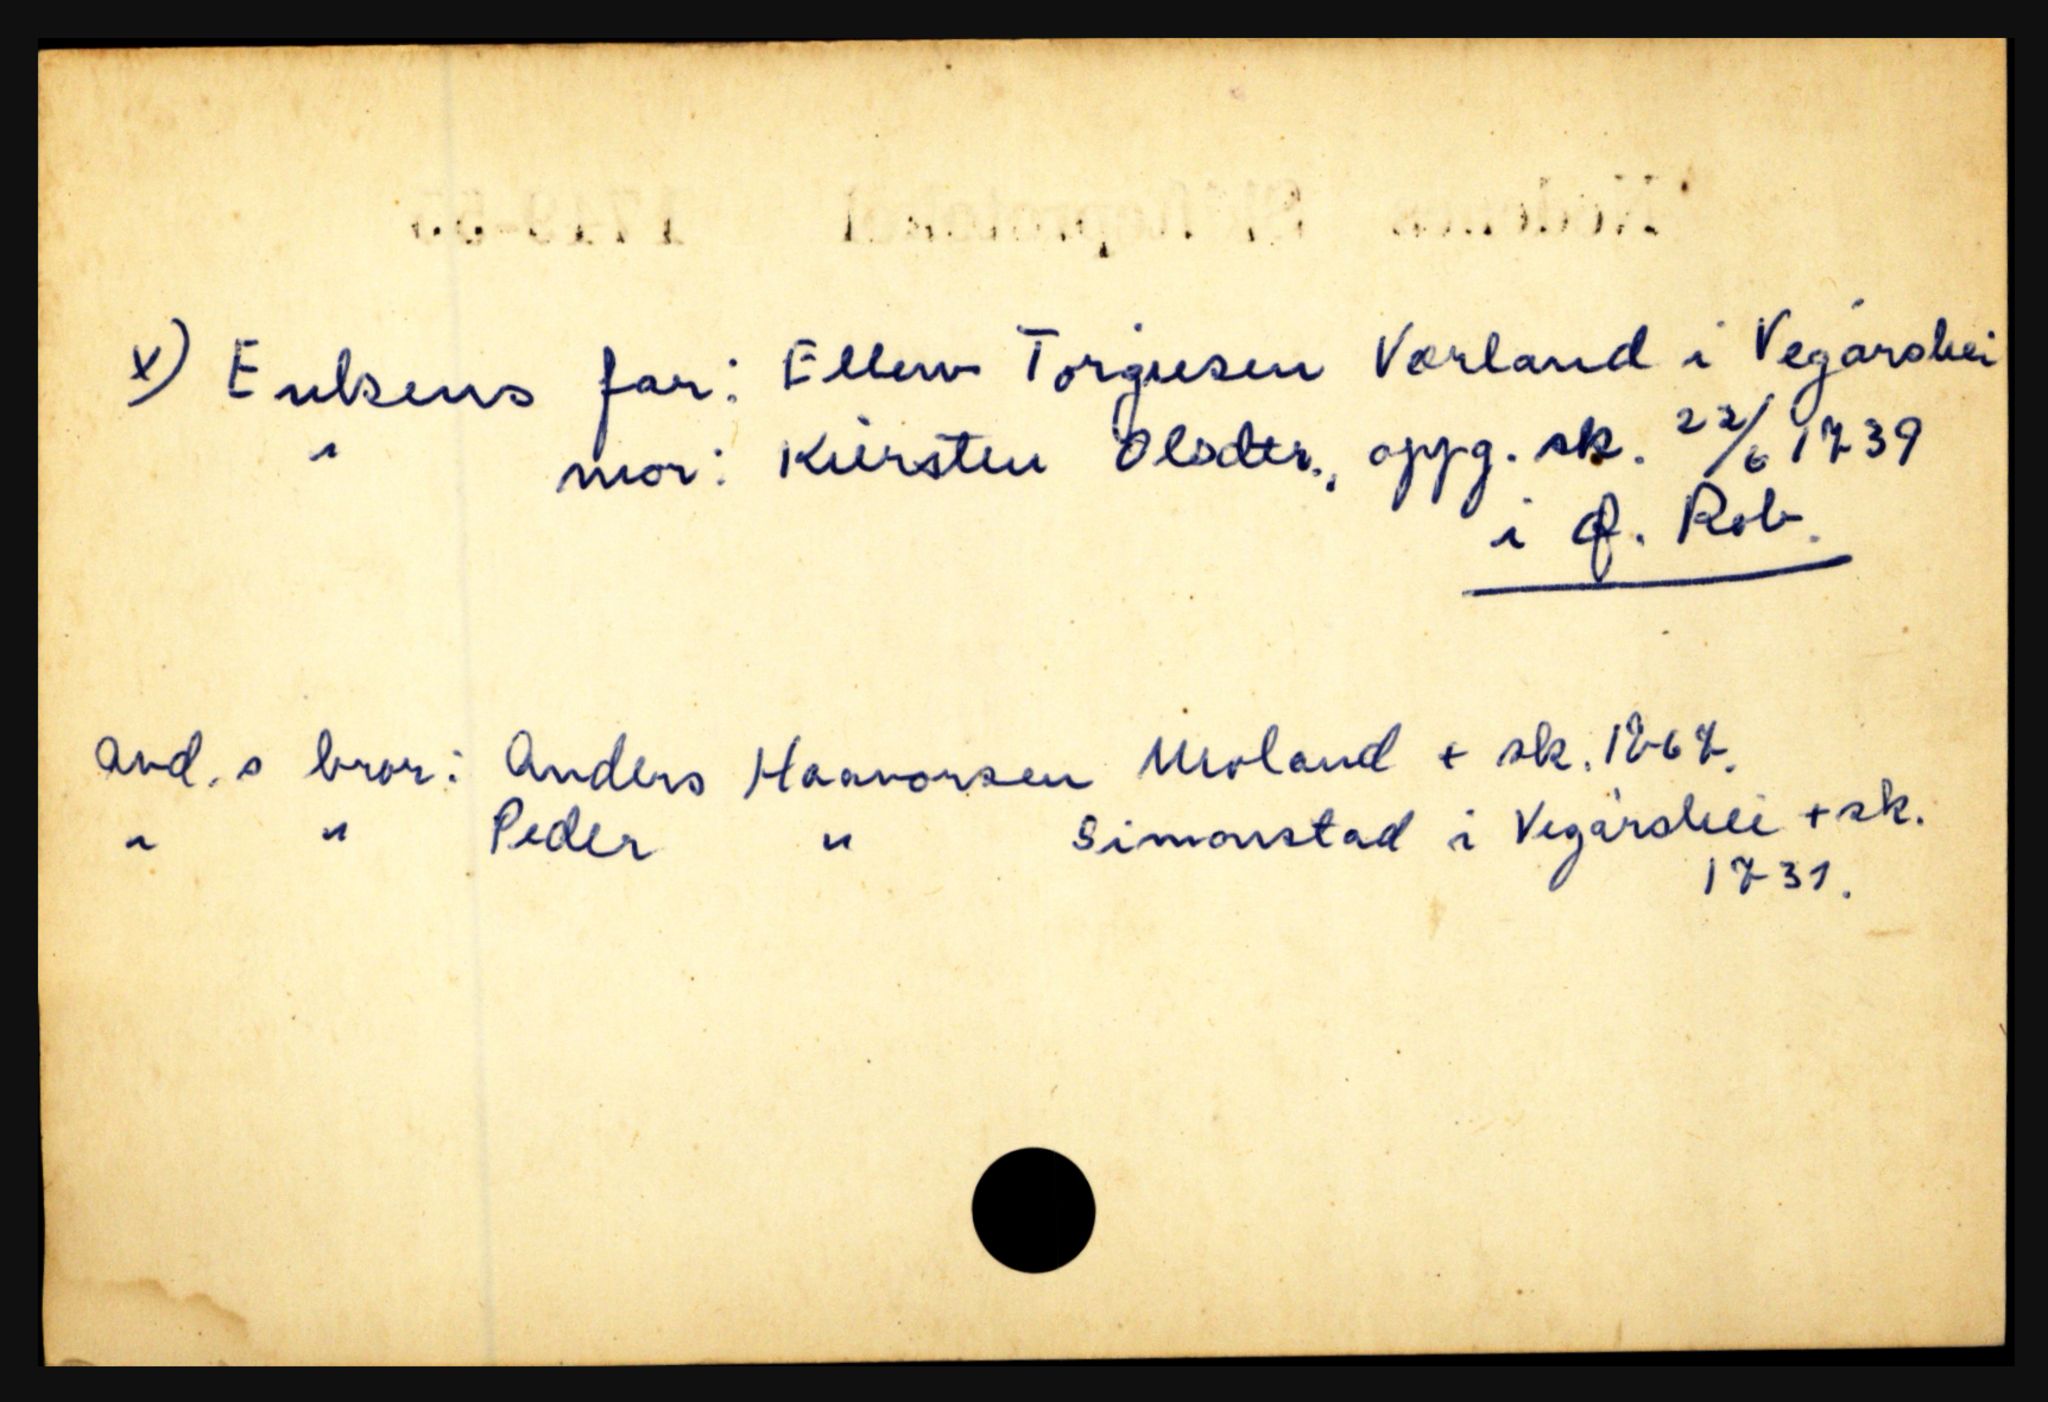 x) Enkens far: Ellev Torgiusen Værland i Vegårshei
" mor: Kiersten Olsdter., oppg. sk. 22/6 1739
i f. Rob.
avd. s bror: Anders Haavorsen Moland + sk. 1767.
" " Peder " Simonstad i Vegårshei + sk.
1731.